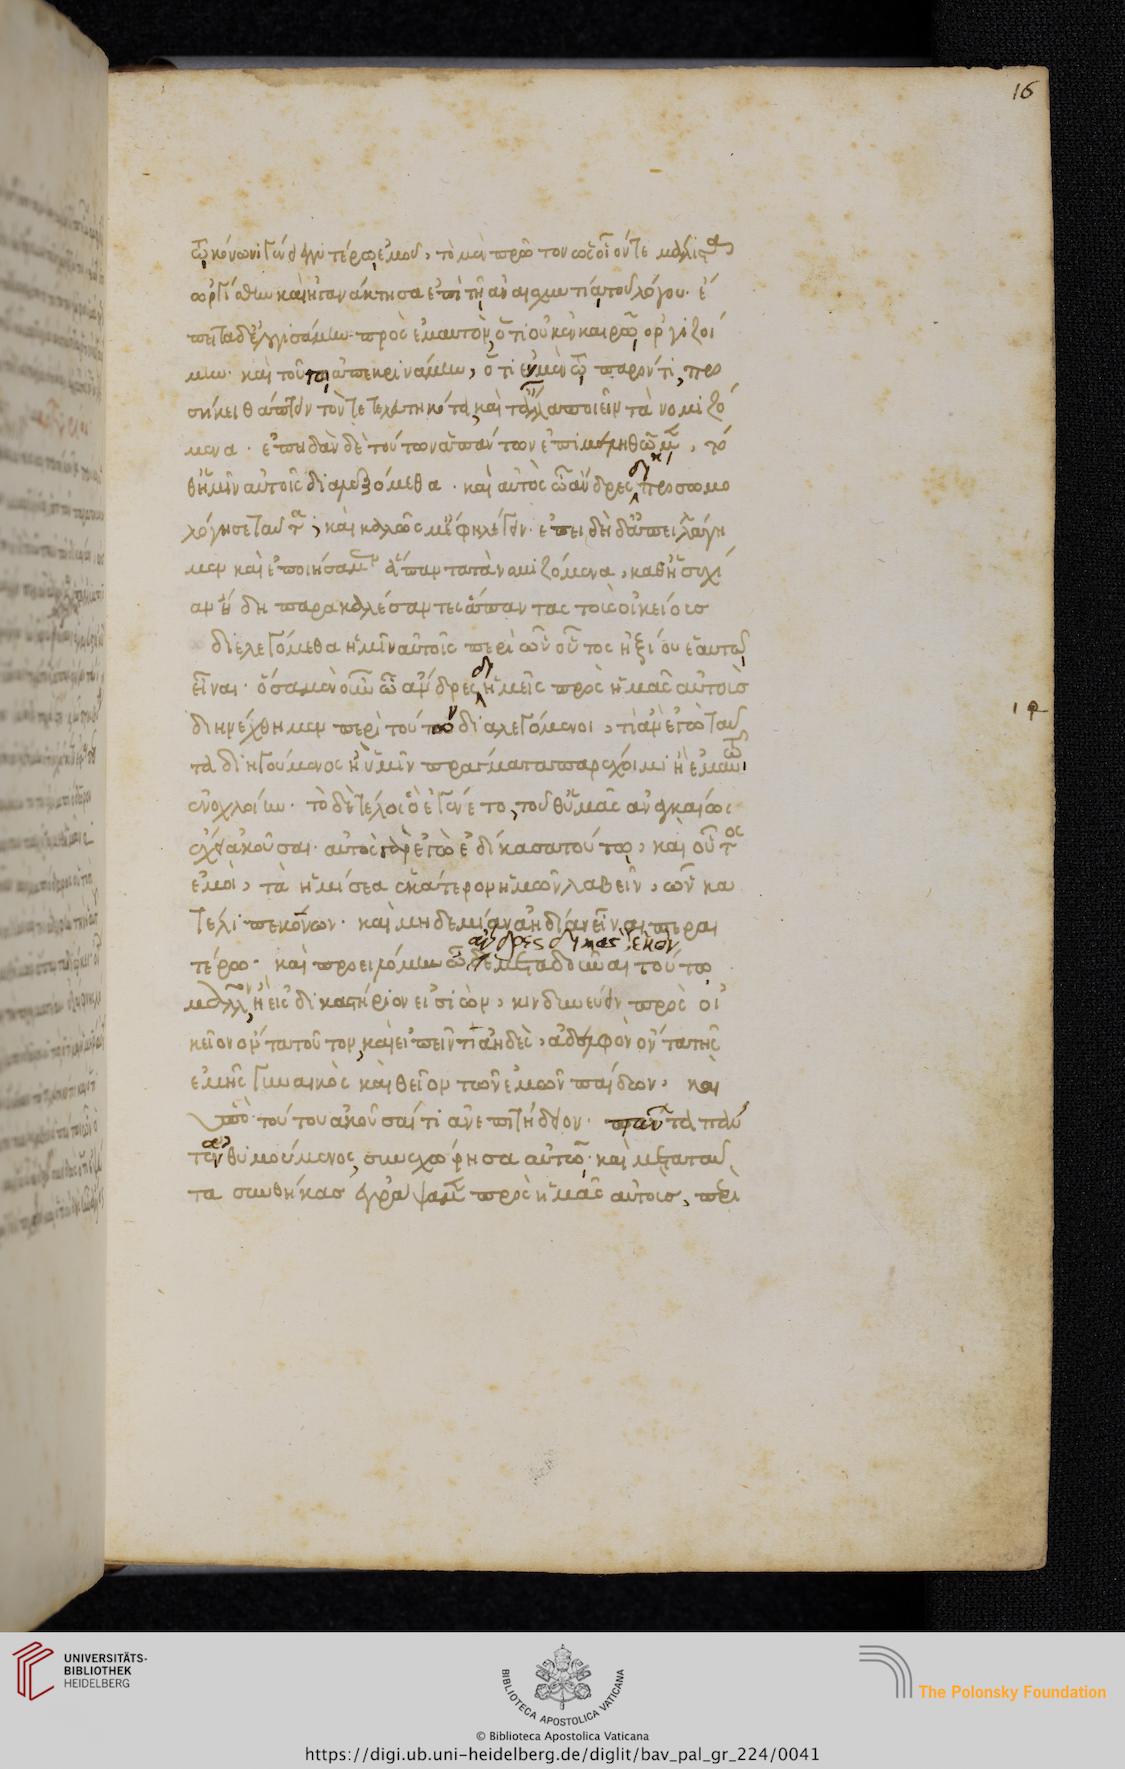 16
τῶ κόνωνι γένει ἐγγυτέρω ἐμοῦ, τὸ μὲν πρῶτον ὡς οἷόν τε μάλιστα
ὠργίσθην καὶ ἠγανάκτησα ἐπὶ τῇ ἀναισχυντίᾳ τοῦ λόγου. ἔ
πειτα δ' ἐλογισάμην πρὸς ἐμαυτὸν, ὅτι οὐκ ἐν καιρῶ ὀργιζοί
μην. καὶ τούτω ἀπεκρινάμην, ὅτι ἐν μὲν τῶ παρόντι, προ
σήκει θάπτειν τὸν τετελευτηκότα, καὶ τἄλλα ποιεῖν τὰ νομιζό
μενα. ἐπειδὰν δὲ τούτων ἁπάντων ἐπιμεληθῶμεν, τό
θ' ἡμῖν αὐτοῖς διαλεξόμεθα. καὶ αὐτὸς ὦ ἄνδρες δικ προσωμο
λόγησε ταῦτα, καὶ καλῶς μ' ἔφη λέγειν. ἐπειδὴ δ' ἀπηλλάγη
μεν καὶ ἐποιήσαμεν ἅπαντα τὰ νομιζόμενα, καθ' ἡσυχί
αν ἤδη παρακαλέσαντες ἅπαντας τοὺς οἰκείους
διελεγόμεθα ἡμῖν αὐτοῖς περὶ ὧν οὗτος ἠξίου ἑαυτῶ
εἶναι. ὅσα μὲν οὖν ὦ ἄνδρες δι ἡμεῖς πρὸς ἡμᾶς αὐτοὺς
διηνέχθημεν περὶ τούτων διαλεγόμενοι, τί ἂν ἐγὼ ταῦ
τα διηγούμενος ἢ ὑμῖν πράγματα παρέχοιμι ἢ ἐμαυτῶ
ἐνοχλοίην. τὸ δὲ τέλος ὃ ἐγένετο, τοῦθ' ὑμᾶς ἀναγκαίως
ἔχει ἀκοῦσαι. αὐτὸς γὰρ ἐγὼ ἐδίκασα τούτω, καὶ οὗτος
ἐμοὶ, τὰ ἡμίσεα ἑκάτερον ἡμῶν λαβεῖν, ὧν κα
τέλιπε κόνων. καὶ μηδεμίαν ἀηδίαν εἶναι περαι
τέρω. καὶ προειλόμην ὦ ἄνδρες δικασταὶ ἑκὼν μεταδοῦναι τούτω
μᾶλλον, ἢ εἰς δικαστήριον εἰσιὼν, κινδυνεύειν πρὸς οἰ
κεῖον ὄντα τοῦτον, καὶ εἰπεῖν τι ἀηδὲς, ἀδελφὸν ὄντα τῆς
ἐμῆς γυναικὸς καὶ θεῖον τῶν ἐμῶν παίδων, καὶ
ὑπὸ τούτου ἀκοῦσαί τι ἀνεπιτήδειον. ταῦτα πάν
τα ἐνθυμούμενος, συνεχώρησα αὐτῶ. καὶ μετὰ ταῦ
τα συνθήκας ἐγράψαμεν πρὸς ἡμᾶς αὐτοὺς, περὶ
UNIVERSITÄTS-
BIBLIOTHEK
HEIDELBERG
BIBLIOTECA APOSTOLICA VATICANA
The Polonsky Foundation
© Biblioteca Apostolica Vaticana
https://digi.ub.uni-heidelberg.de/diglit/bav_pal_gr_224/0041